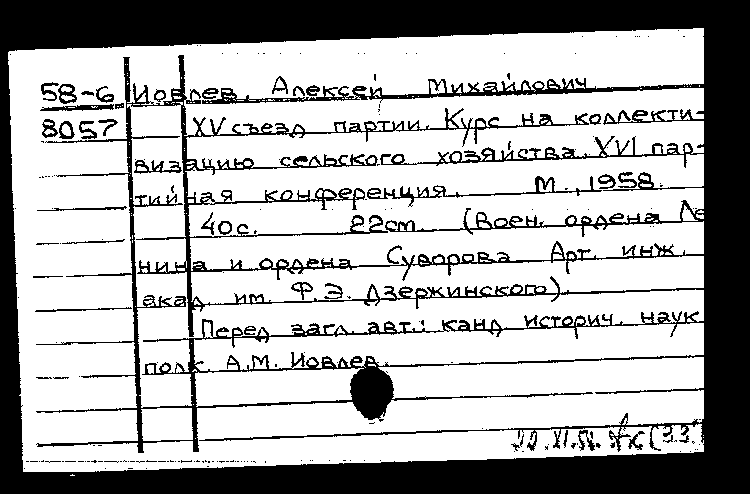 58-6 Иовлев, Алексей Михайлович
8057 XV съезд партии. Курс на коллекти-
визацию сельского хозяйства. XVI пар-
тийная конференция. М., 1958.
40с. 22cm. (Воен. ордена Ле
нина и ордена Суворова Арт. инж.
акад им. Ф.Э. Дзержинского).
Перед загл. авт.: канд историч. наук
полк. А.М. Иовлев.